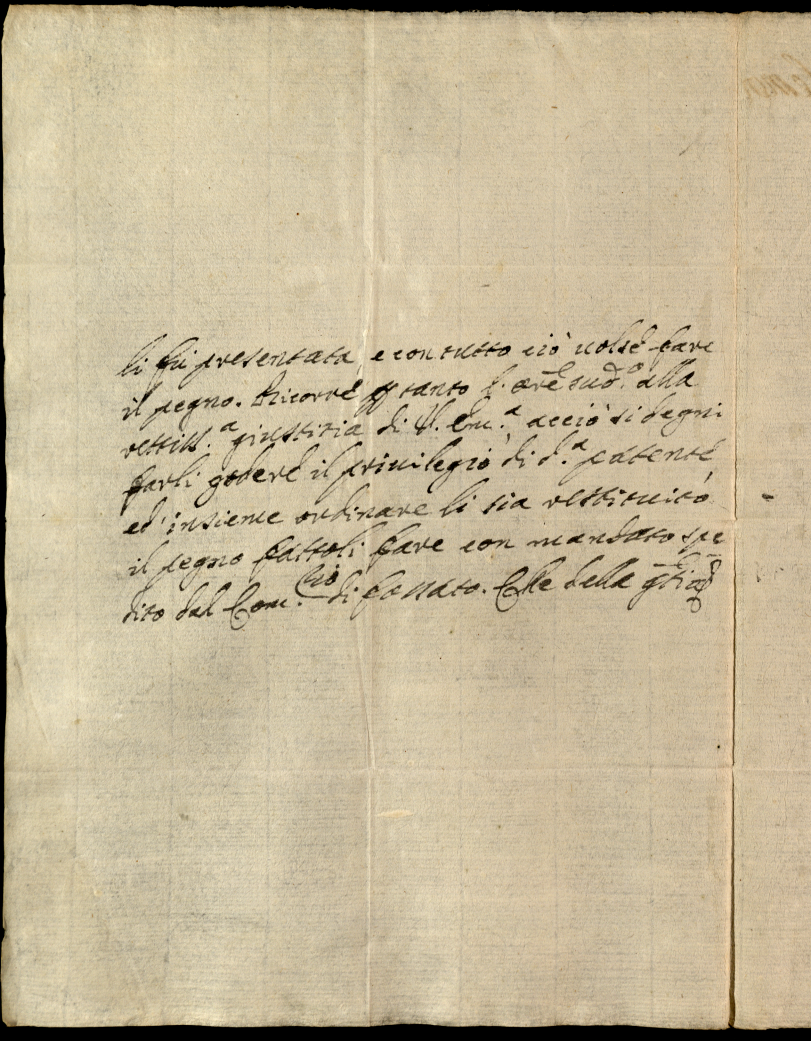 li fù presentata, e con tutto ciò uolse fare
il pegno. Ricorre p tanto l'ore sud.º alla
rettiss.ª giustitia di V. Em.ª acciò si degni
farli godere il priuilegio di d.ª patente,
ed' insieme ordinare li sia restituito
il pegno fattoli fare con mandato spe
dito dal Com.rio di Fossato. Che della gtia